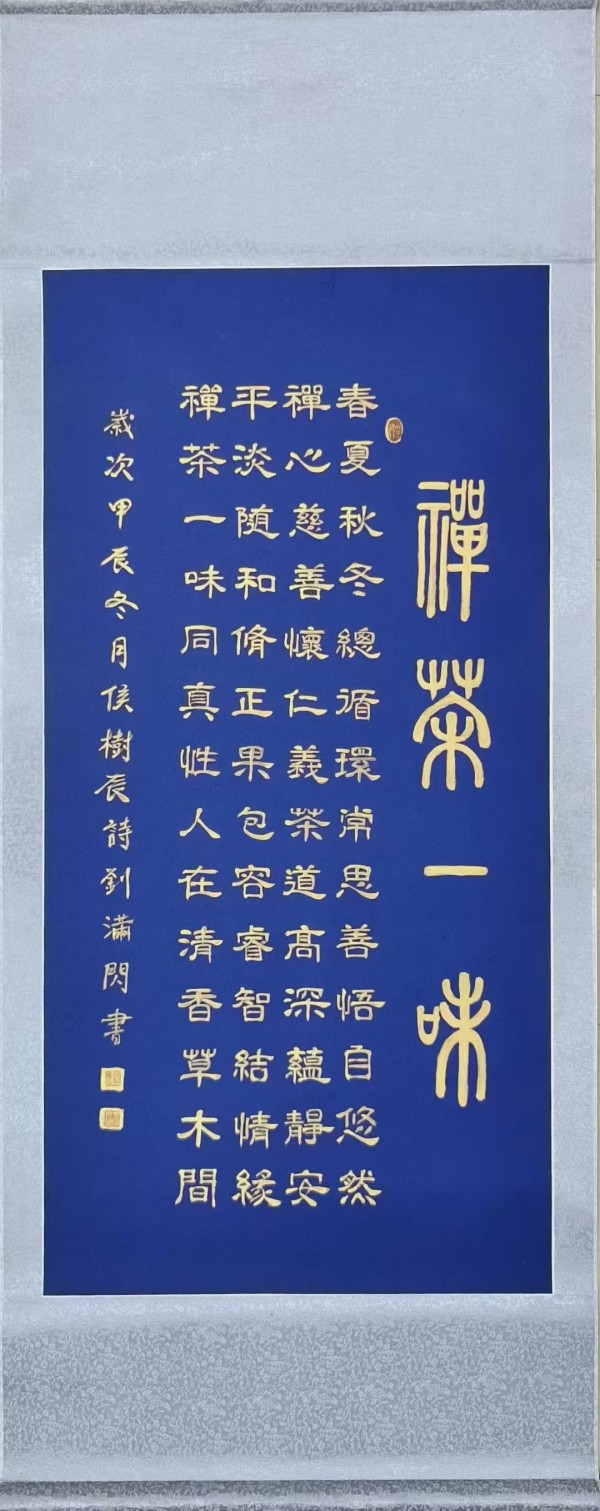 禪茶一味
春夏秋冬總循環常思善悟自悠然
禪心慈善懷仁義茶道高深蘊靜安
平淡随和脩正果包容睿智結情緣
禪茶一味同真性人在清香草木間
歲次甲辰冬月侯樹辰詩劉瀟閃書